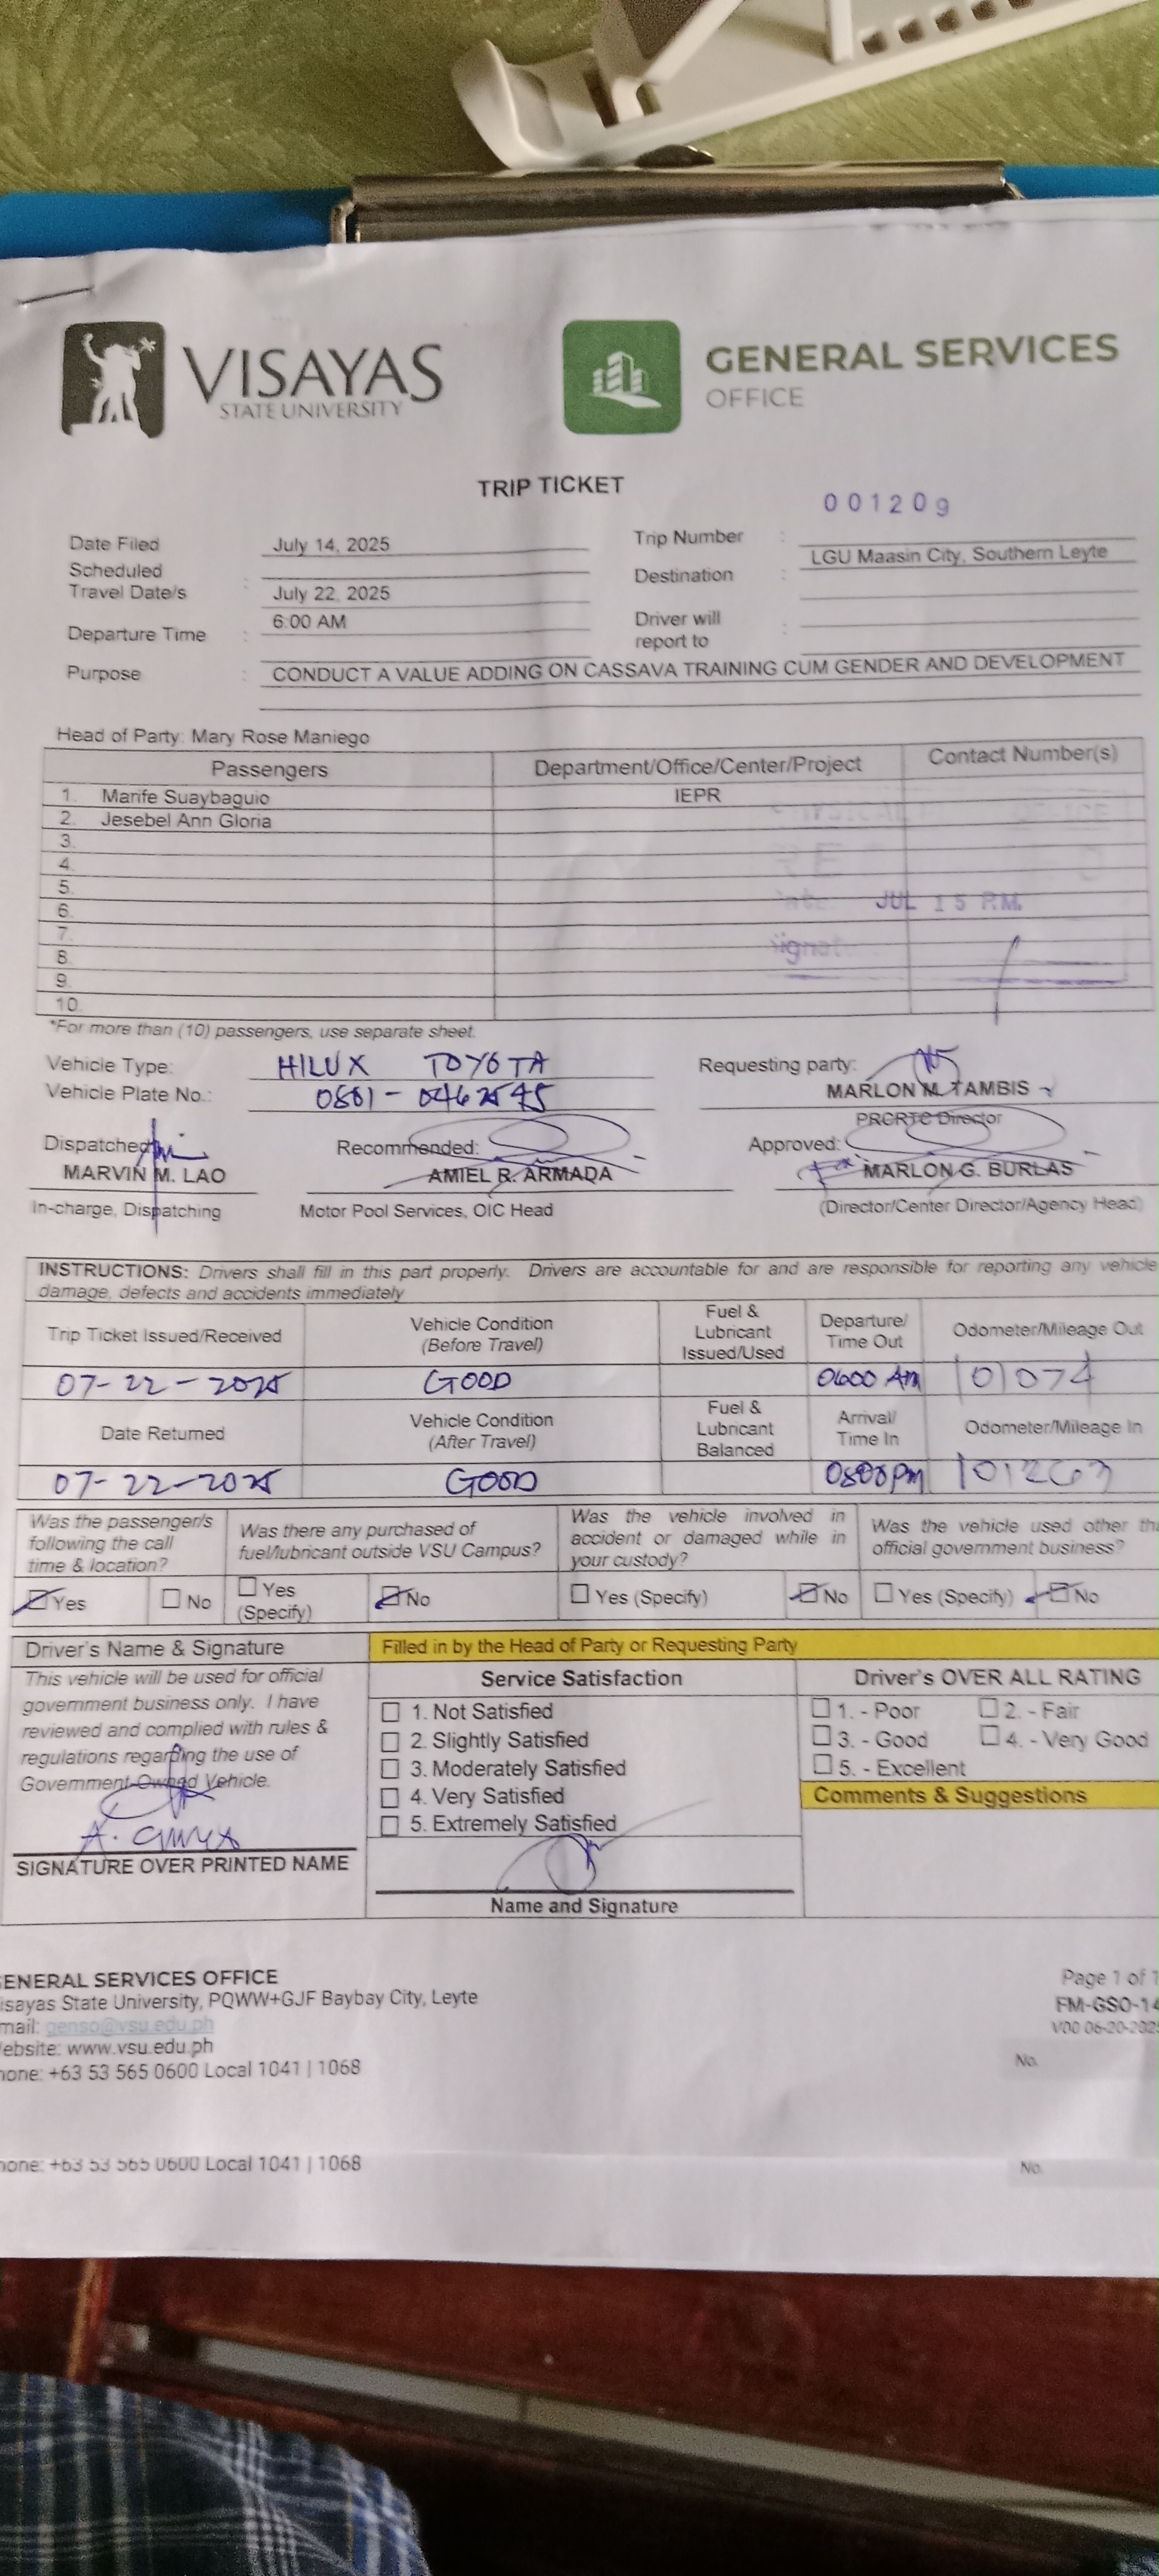 VISAYAS
STATE UNIVERSITY
GENERAL SERVICES
OFFICE
TRIP TICKET
001209
Date Filed July 14, 2025
Trip Number :
Scheduled
Travel Date/s : July 22, 2025
Destination : LGU Maasin City, Southern Leyte
Departure Time : 6:00 AM
Driver will
report to :
Purpose : CONDUCT A VALUE ADDING ON CASSAVA TRAINING CUM GENDER AND DEVELOPMENT
Head of Party: Mary Rose Maniego
Passengers Department/Office/Center/Project Contact Number(s)
1. Marife Suaybaguio IEPR
2. Jesebel Ann Gloria
3.
4.
5.
6.
JUL 15 P.M.
7.
8.
9.
10.
*For more than (10) passengers, use separate sheet.
Vehicle Type: HILUX TOYOTA
Requesting party:
Vehicle Plate No.: 0801-
MARLON M. TAMBIS
PRCRTC Director
Dispatched
Recommended:
Approved:
MARVIN M. LAO
AMIEL R. ARMADA
MARLON G. BURLAS
In-charge, Dispatching
Motor Pool Services, OIC Head
(Director/Center Director/Agency Head)
INSTRUCTIONS: Drivers shall fill in this part properly. Drivers are accountable for and are responsible for reporting any vehicle
damage, defects and accidents immediately
Trip Ticket Issued/Received
Vehicle Condition
(Before Travel)
Fuel &
Lubricant
Issued/Used
Departure/
Time Out
Odometer/Mileage Out
07-22-2025 GOOD 0600 AM 101074
Date Returned
Vehicle Condition
(After Travel)
Fuel &
Lubricant
Balanced
Arrival/
Time In
Odometer/Mileage In
07-22-2025 GOOD
Was the passenger/s
following the call
time & location?
Was there any purchased of
fuel/lubricant outside VSU Campus?
Was the vehicle involved in
accident or damaged while in
your custody?
Was the vehicle used other
official government business?
Yes No
Yes
(Specify)
No
Yes (Specify) No
Yes (Specify) No
Driver's Name & Signature
Filled in by the Head of Party or Requesting Party
This vehicle will be used for official
government business only. I have
reviewed and complied with rules &
regulations regarding the use of
Government-Owned Vehicle.
SIGNATURE OVER PRINTED NAME
Service Satisfaction
1. Not Satisfied
2. Slightly Satisfied
3. Moderately Satisfied
4. Very Satisfied
5. Extremely Satisfied
Name and Signature
Driver's OVER ALL RATING
1. - Poor 2. - Fair
3. - Good 4. - Very Good
5. - Excellent
Comments & Suggestions
ENERAL SERVICES OFFICE
isayas State University, PQWW+GJF Baybay City, Leyte
mail: genso@vsu.edu.ph
ebsite: www.vsu.edu.ph
one: +63 53 565 0600 Local 1041 | 1068
Page 1 of 1
FM-GSO-14
V00 06-20-202
No.
one: +63 53 565 0600 Local 1041 | 1068
No.